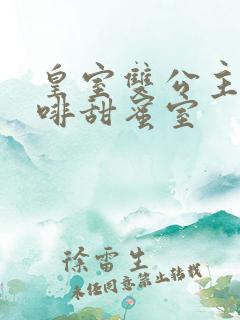 皇室雙公主
啡甜蜜室
徐雷生
未经同意禁止转载